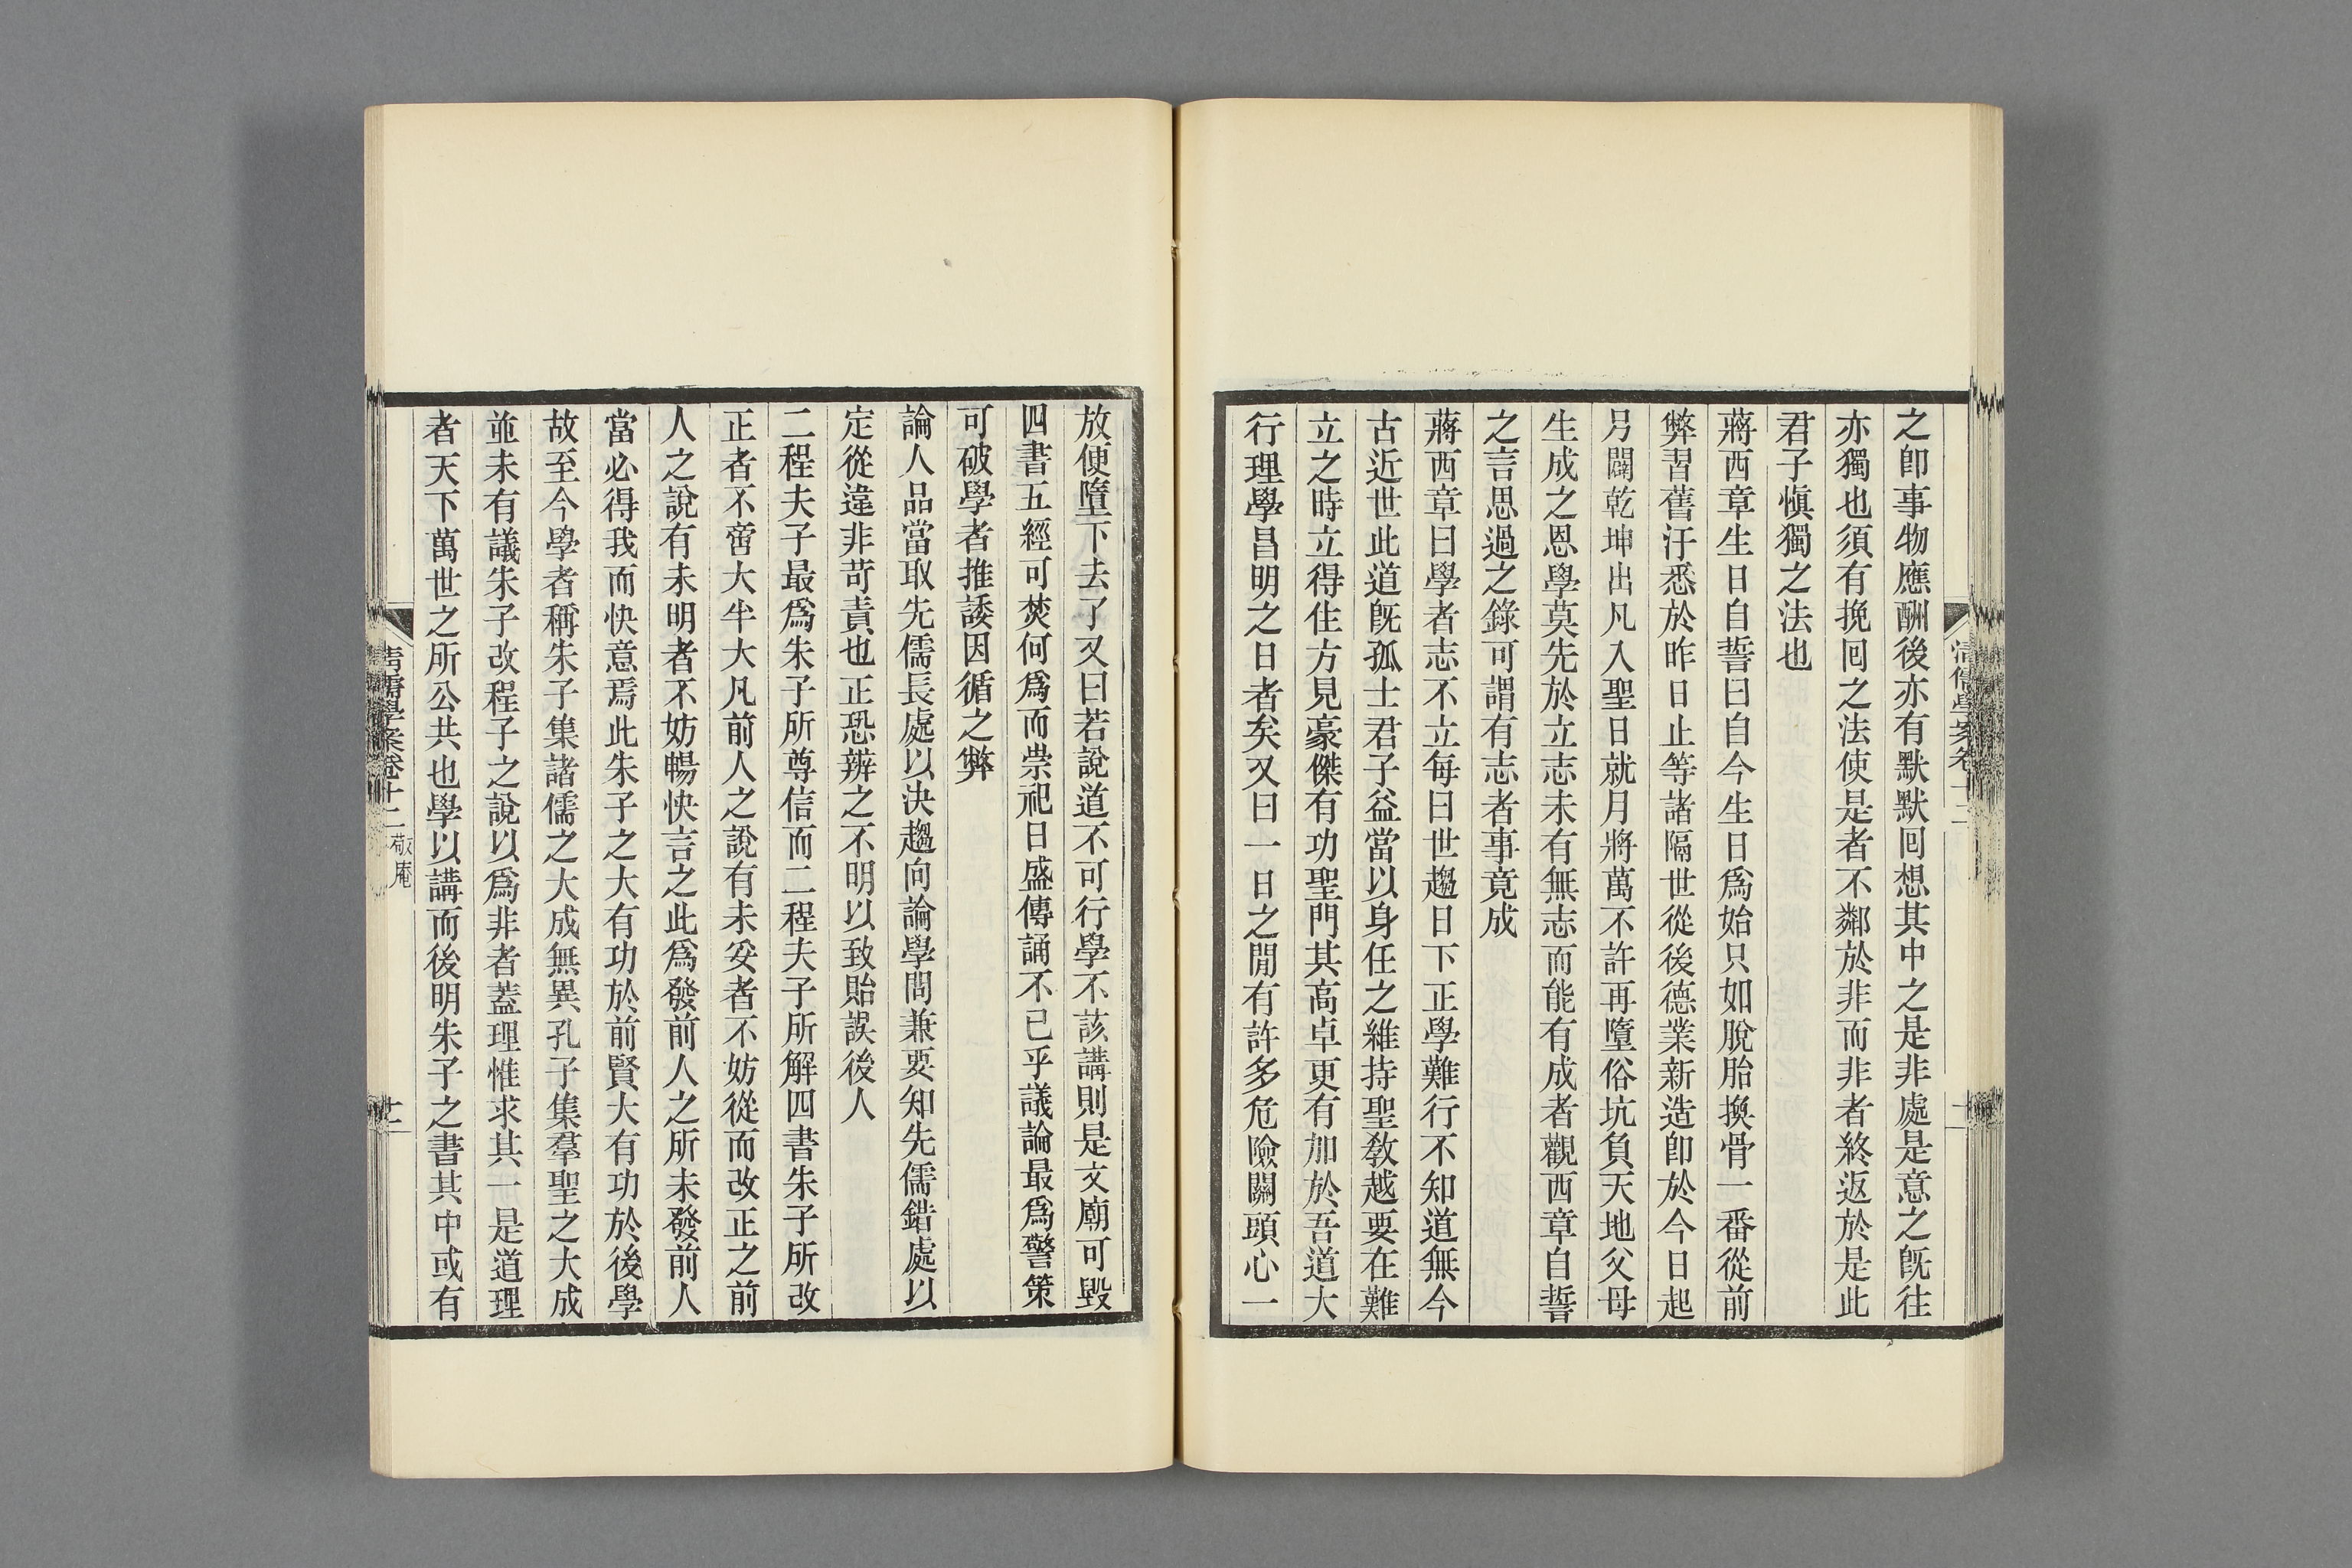 之卽事物應酬後亦有默默囘想其中之是非處是意之旣往
亦獨也須有挽囘之法使是者不鄰於非而非者終返於是此
君子愼獨之法也
蔣西章生日自誓曰自今生日爲始只如脫胎換骨一番從前
弊習舊汙悉於昨日止等諸隔世從後德業新造卽於今日起
另闢乾坤出凡入聖日就月將萬不許再墮俗坑負天地父母
生成之恩學莫先於立志未有無志而能有成者觀西章自誓
之言思過之錄可謂有志者事竟成
蔣西章曰學者志不立每曰世趨日下正學難行不知道無今
古近世此道旣孤士君子益當以身任之維持聖敎越要在難
立之時立得住方見豪傑有功聖門其高卓更有加於吾道大
行理學昌明之日者矣又曰一日之閒有許多危險關頭心一
放便墮下去了又曰若說道不可行學不該講則是文廟可毀
四書五經可焚何爲而崇祀日盛傳誦不已乎議論最爲警策
可破學者推諉因循之弊
論人品當取先儒長處以決趨向論學問兼要知先儒錯處以
定從違非苛責也正恐辨之不明以致貽誤後人
二程夫子最爲朱子所尊信而二程夫子所解四書朱子所改
正者不啻大半大凡前人之說有未妥者不妨從而改正之前
人之說有未明者不妨暢快言之此爲發前人之所未發前人
當必得我而快意焉此朱子之大有功於前賢大有功於後學
故至今學者稱朱子集諸儒之大成無異孔子集羣聖之大成
並未有議朱子改程子之說以爲非者蓋理惟求其一是道理
者天下萬世之所公共也學以講而後明朱子之書其中或有
清儒學案卷十二 敬庵